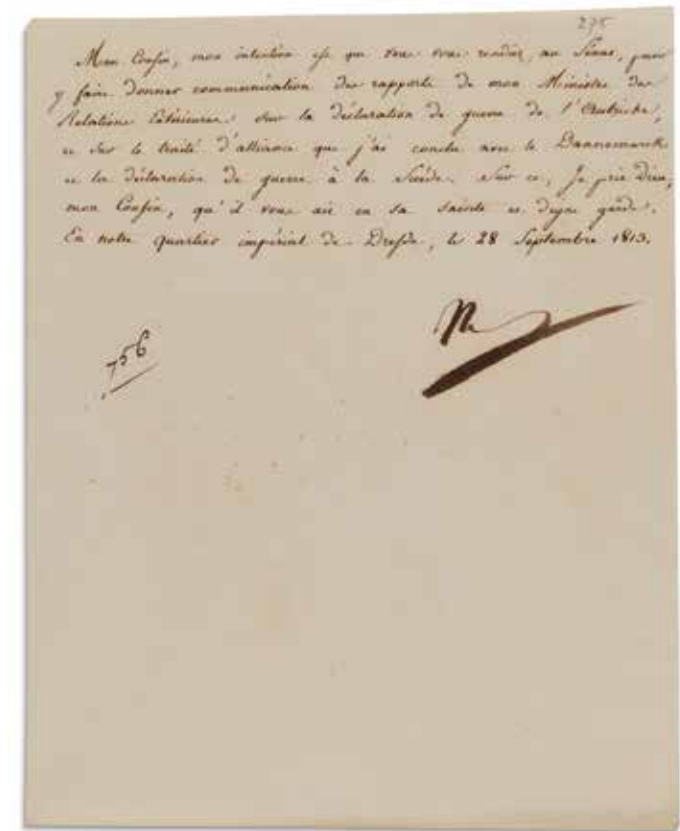 275
Mon Cousin, mon intention est que vous vous rendiez au Sénat, pour
y faire donner communication des rapports de mon Ministre des
Relations Extérieures sur la déclaration de guerre de l'Autriche,
et sur le traité d'alliance que j'ai conclu avec le Dannemarck
et la déclaration de guerre à la Suède. Sur ce, Je prie Dieu,
mon Cousin, qu'il vous ait en sa sainte et digne garde.
En notre quartier impérial de Dresde, le 28 Septembre 1813.
756